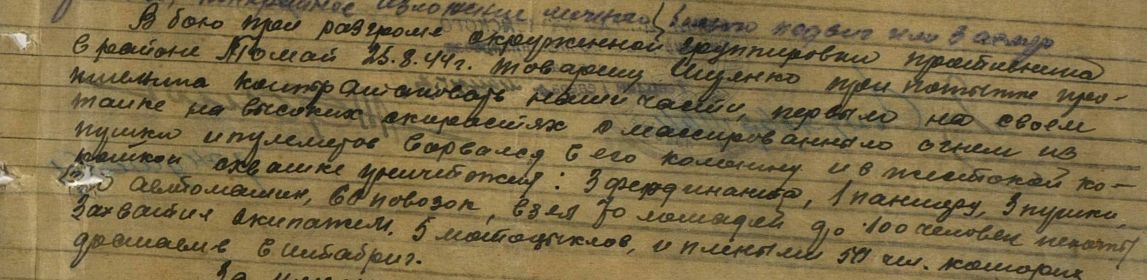 краткое изложение личного боевого подвига или заслуг
В бою при разгроме окруженной группировки противника
в районе Томай 25.8.44г. товарищ при попытке про-
тивника контратаковать наши части, первым на своем
танке на высоких скоростях с массированным огнем из
пушки и пулеметов ворвался в его колонну и в жестокой ко-
роткой схватке уничтожил: 3 фердинанта, 1 пантеру, 3 пушки,
автомашин, 60 повозок, взял 70 лошадей до 100 человек пехоты
Захватил экипажем, 5 мотоцыклов, и пленными 50 чел. которых
доставил в штабриг.
За